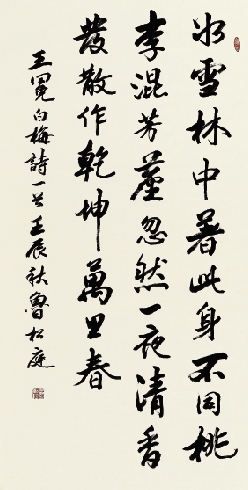 冰雪林中著此身不同桃
李混芳塵忽然一夜清香
發散作乾坤萬里春
王冕白梅詩一首壬辰秋魯松庭